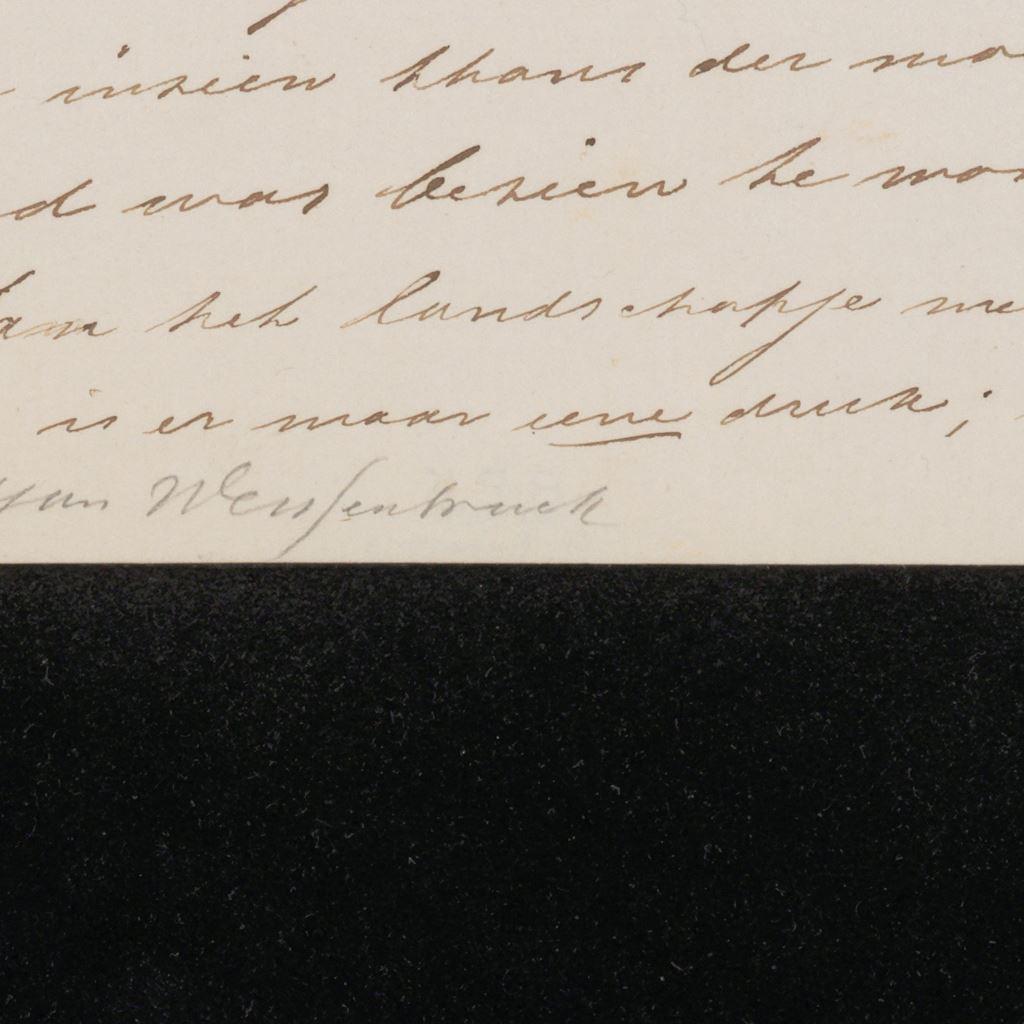 inzien thans der
d was bezien te
het landschapje
is er maar eene druk;
Weissenbruch